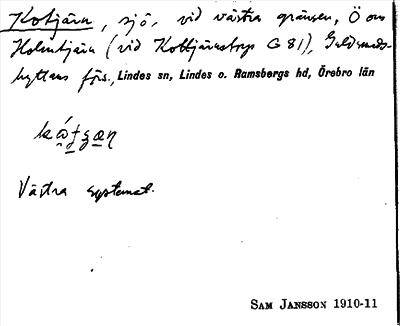 Kotjärn, sjö, vid västra gränsen, Ö om
Holmtjärn (vid Kottjärnstorp G 81), Guldsmeds-
hyttans fjs., Lindes sn, Lindes o. Ramsbergs hd, Örebro län
Västra systemet.
SAM JANSSON 1910-11